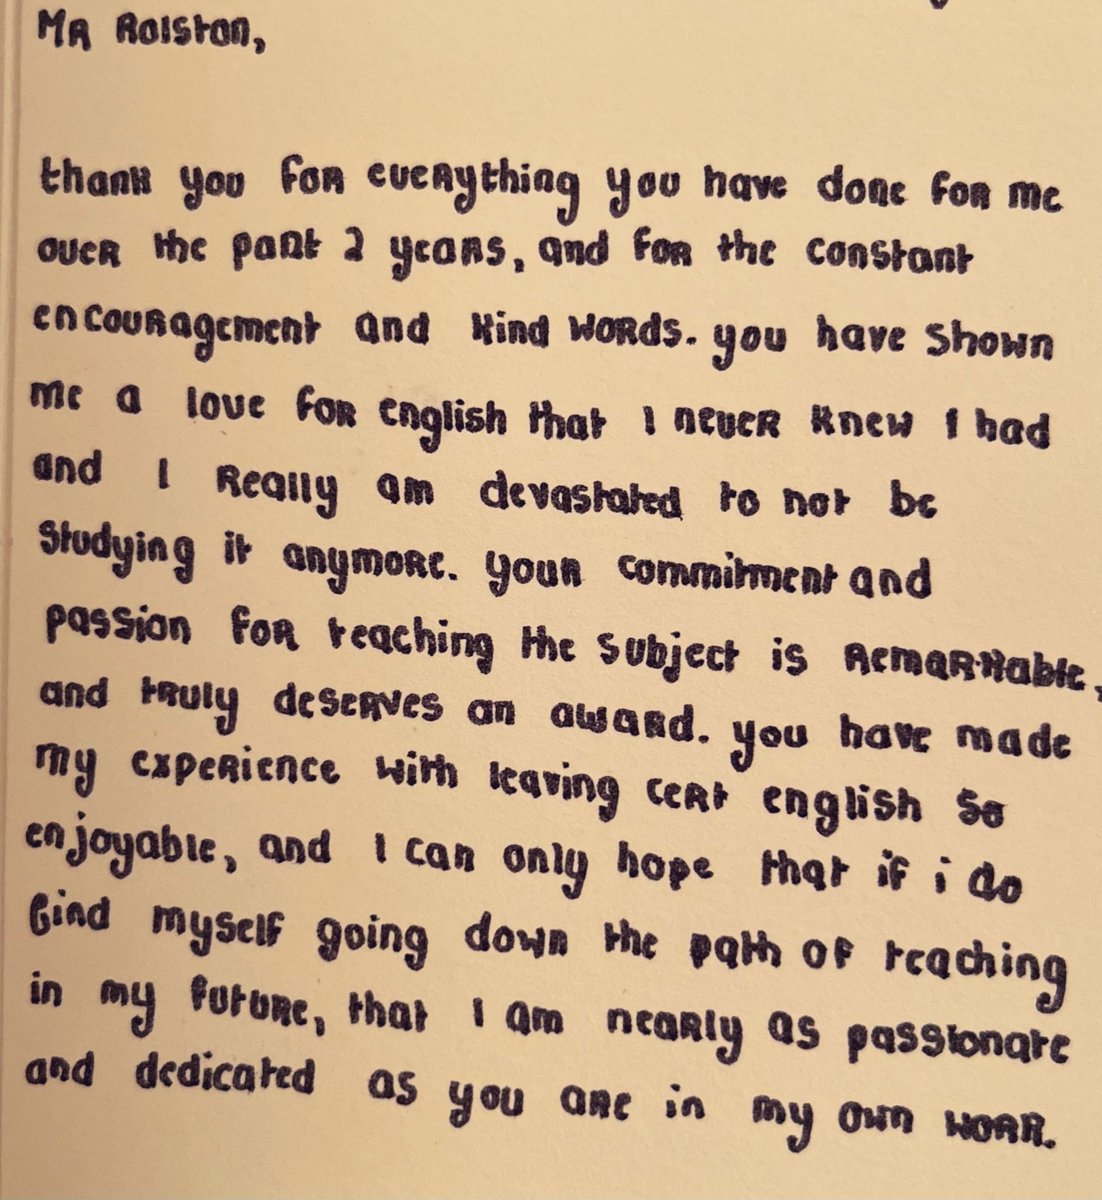 Mr Rolston,
thank you for everything you have done for me
over the past 2 years, and for the constant
encouragement and kind words. you have shown
me a love for english that I never knew I had
and I really am devastated to not be
studying it anymore. your commitment and
passion for teaching the subject is remarkable,
and truly deserves an award. you have made
my experience with leaving cert english so
enjoyable, and I can only hope that if i do
find myself going down the path of teaching
in my future, that I am nearly as passionate
and dedicated as you are in my own work.